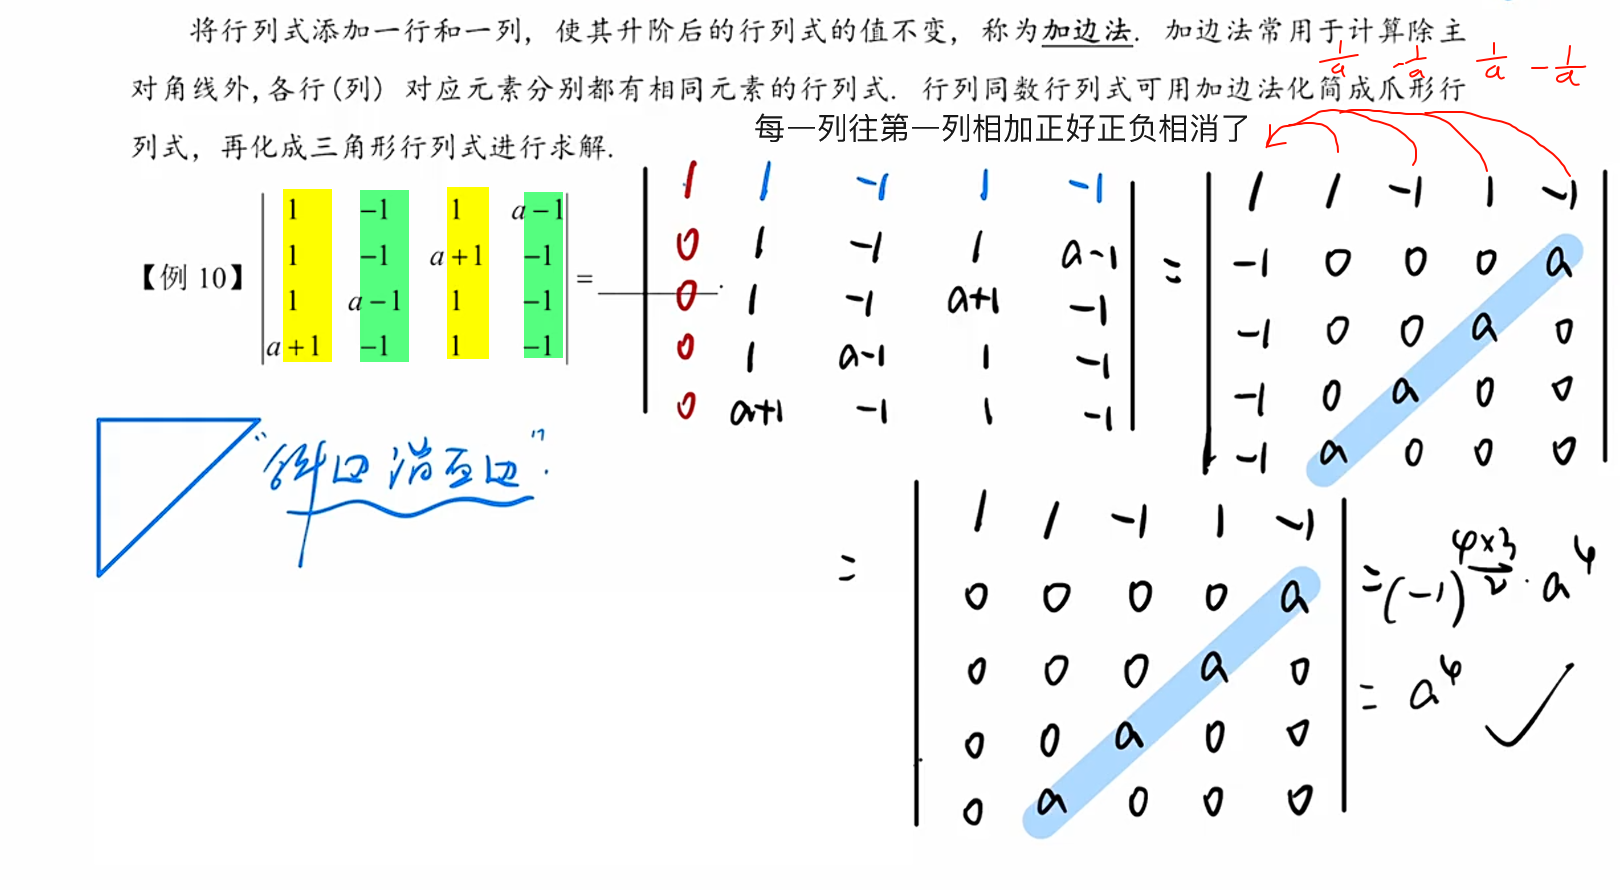 将行列式添加一行和一列，使其升阶后的行列式的值不变，称为加边法．加边法常用于计算除主
对角线外，各行(列) 对应元素分别都有相同元素的行列式．行列同数行列式可用加边法化简成爪形行
列式，再化成三角形行列式进行求解．
1/a -1/a 1/a -1/a
每一列往第一列相加正好正负相消了
【例 10】
1 -1 1 a-1
1 -1 a+1 -1
1 a-1 1 -1
a+1 -1 1 -1
= ________.
1 1 -1 1 -1
0 1 -1 1 a-1
0 1 -1 a+1 -1
0 1 a-1 1 -1
0 a+1 -1 1 -1
=
1 1 -1 1 -1
-1 0 0 0 a
-1 0 0 a 0
-1 0 a 0 0
-1 a 0 0 0
"斜边消直边".
=
1 1 -1 1 -1
0 0 0 0 a
0 0 0 a 0
0 0 a 0 0
0 a 0 0 0
=(-1)^(4×3/2)·a^4
= a^4 ✓